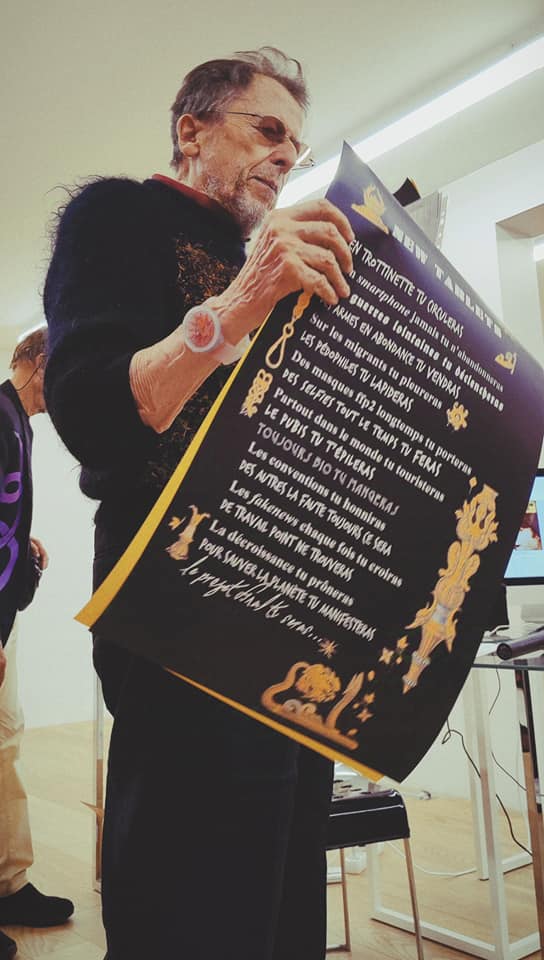 NEW TABLETS
EN TROTTINETTE TU CIRCULERAS
smartphone jamais tu n'abandonneras
guerres lointaines tu déclencheras
ARMES EN ABONDANCE TU VENDRAS
Sur les migrants tu pleureras
LES PÉDOPHILES TU LAPIDERAS
Des masques ffp2 longtemps tu porteras
DES SELFIES TOUT LE TEMPS TU FERAS
Partout dans le monde tu touristeras
LE PUBIS TU T'ÉPILERAS
TOUJOURS BIO TU MANGERAS
Les conventions tu honniras
DES AUTRES LA FAUTE TOUJOURS CE SERA
Les fakenews chaque fois tu croiras
DE TRAVAIL POINT NE TROUVERAS
La décroissance tu prôneras
POUR SAUVER LA PLANÈTE TU MANIFESTERAS